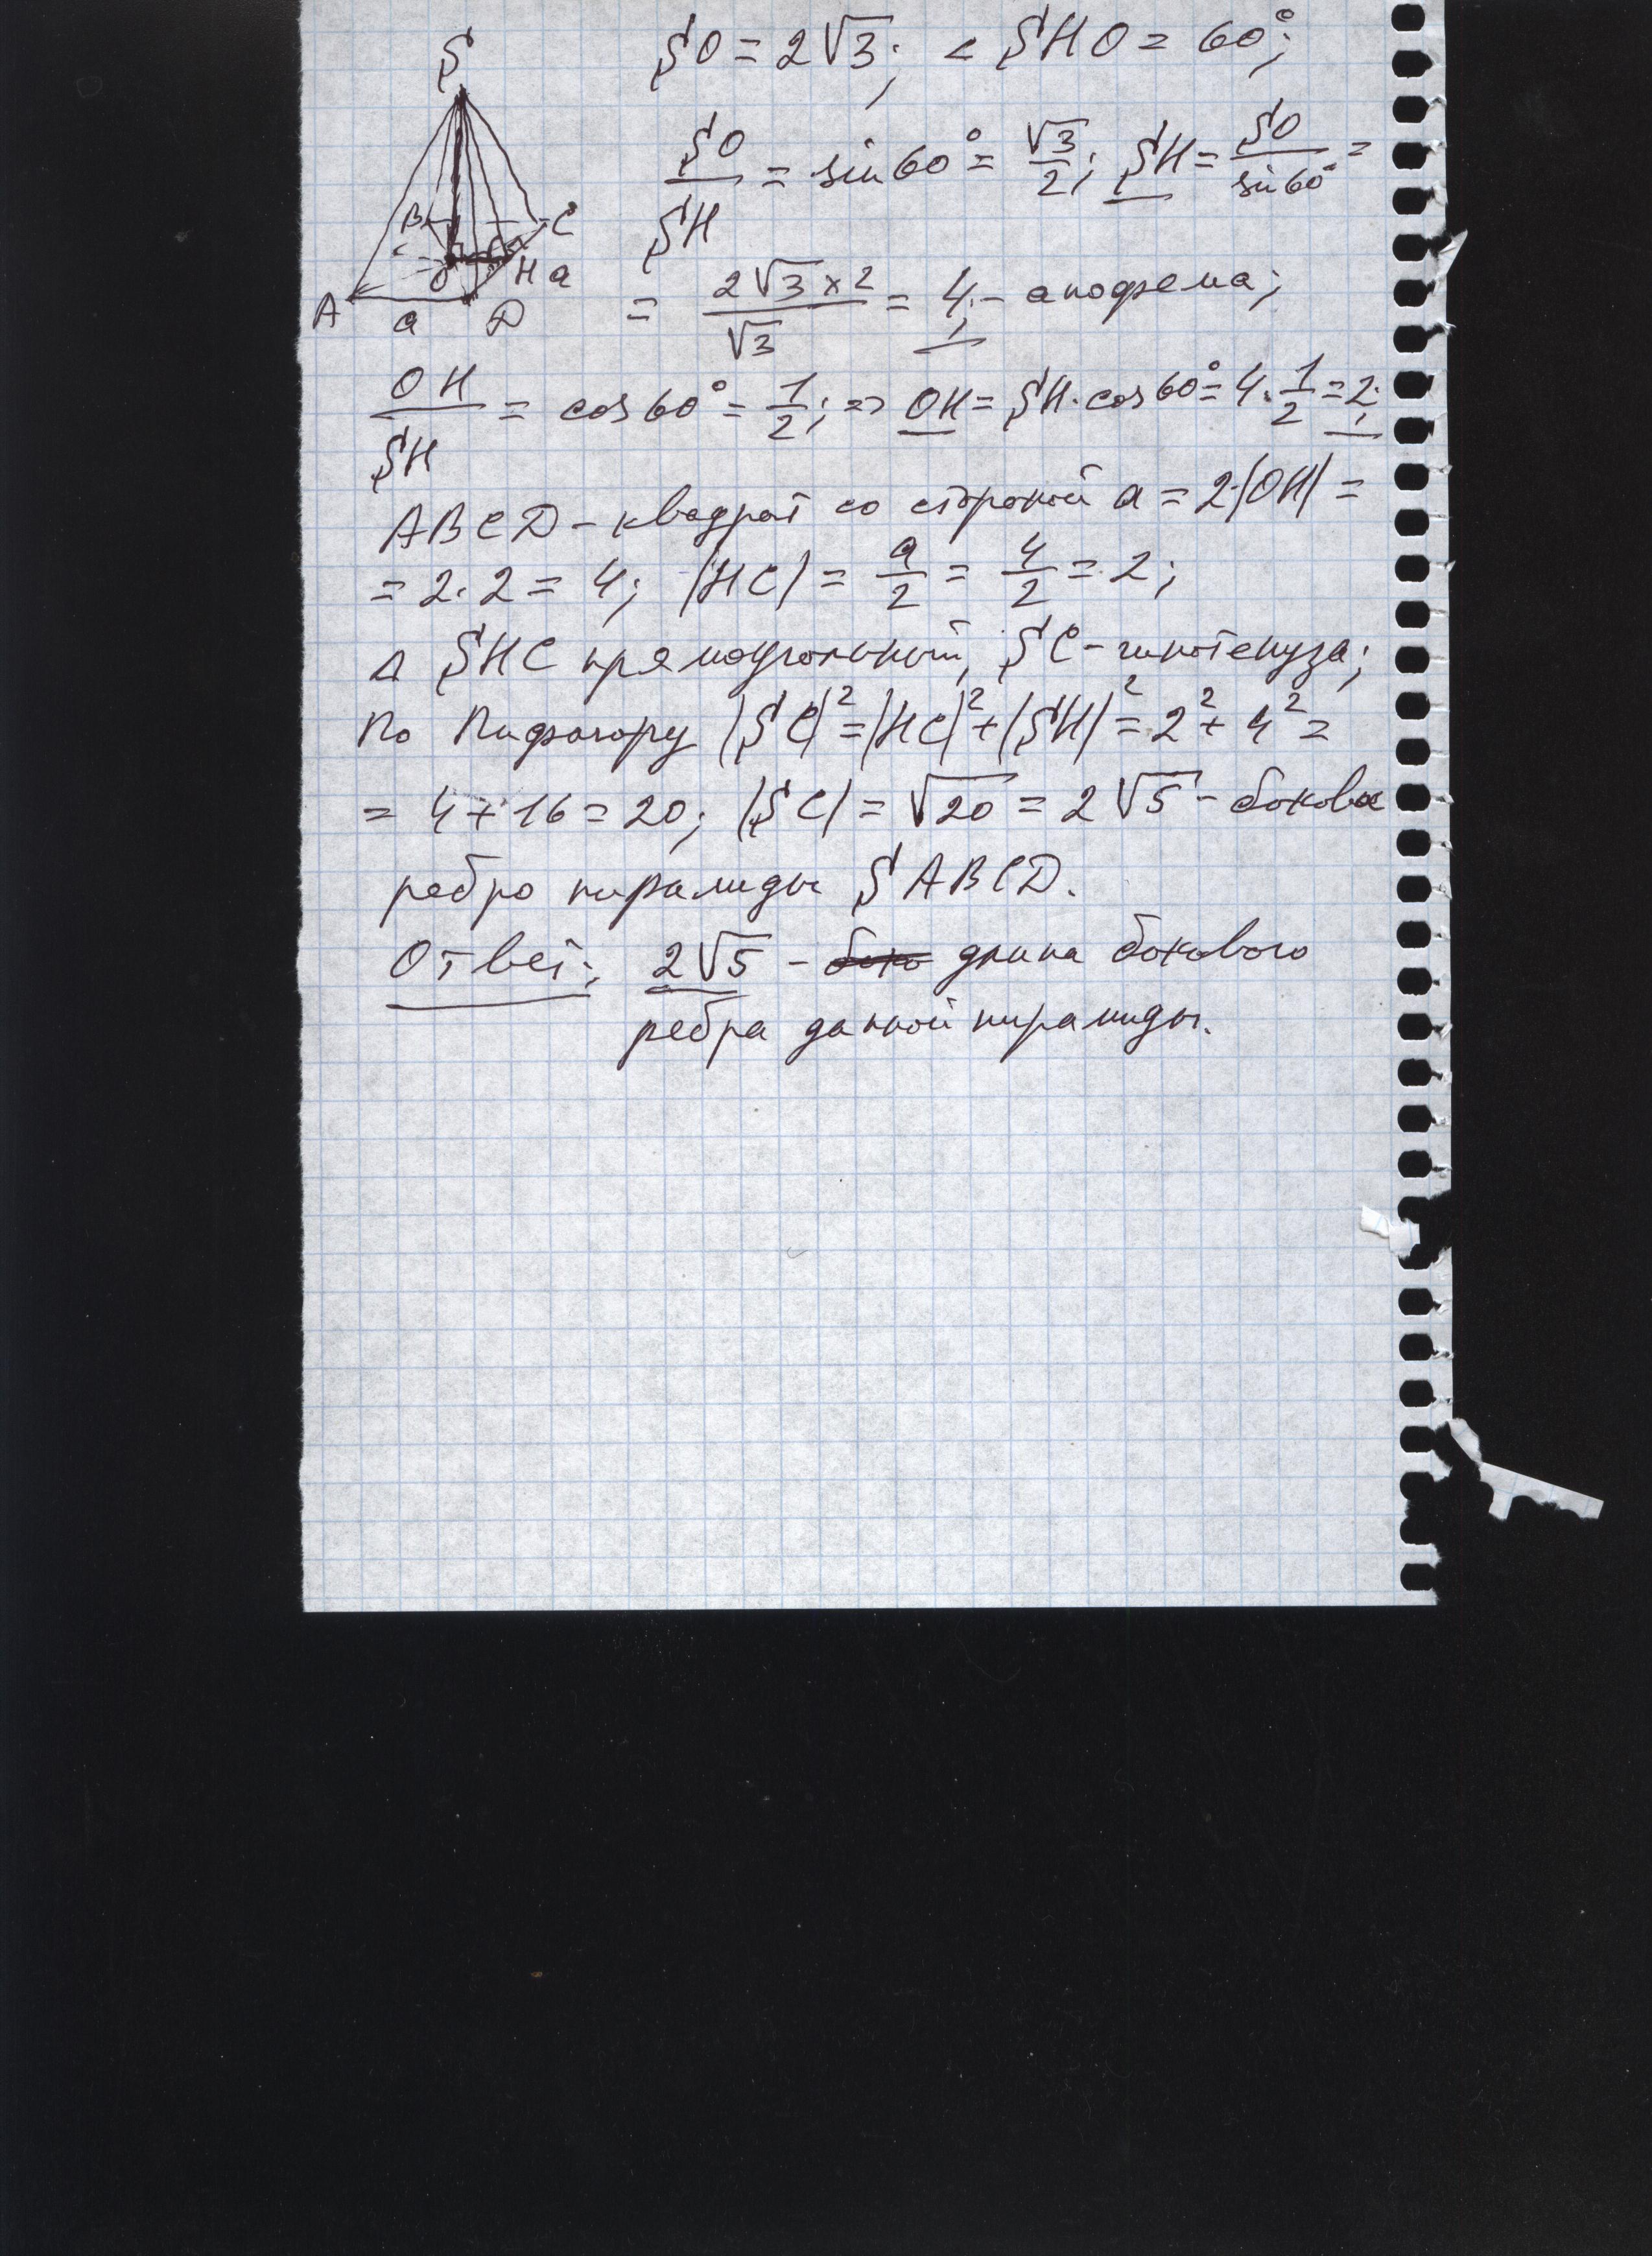 S
B
C
O
H a
A
a
D
SO = 2√3; < SHO = 60°;
SO/SH = sin 60° = √3/2; SH = SO/sin 60° =
= 2√3 × 2/√3 = 4; - апофема;
OH/SH = cos 60° = 1/2; => OH = SH · cos 60° = 4 · 1/2 = 2;
ABCD - квадрат со стороной a = 2·|OH| =
= 2 · 2 = 4; |HC| = a/2 = 4/2 = 2;
Δ SHC прямоугольный, SC - гипотенуза;
По Пифагору |SC|² = |HC|² + |SH|² = 2² + 4² =
= 4 + 16 = 20; |SC| = √20 = 2√5 - боковое
ребро пирамиды SABCD.
Ответ: 2√5 - длина бокового
ребра данной пирамиды.